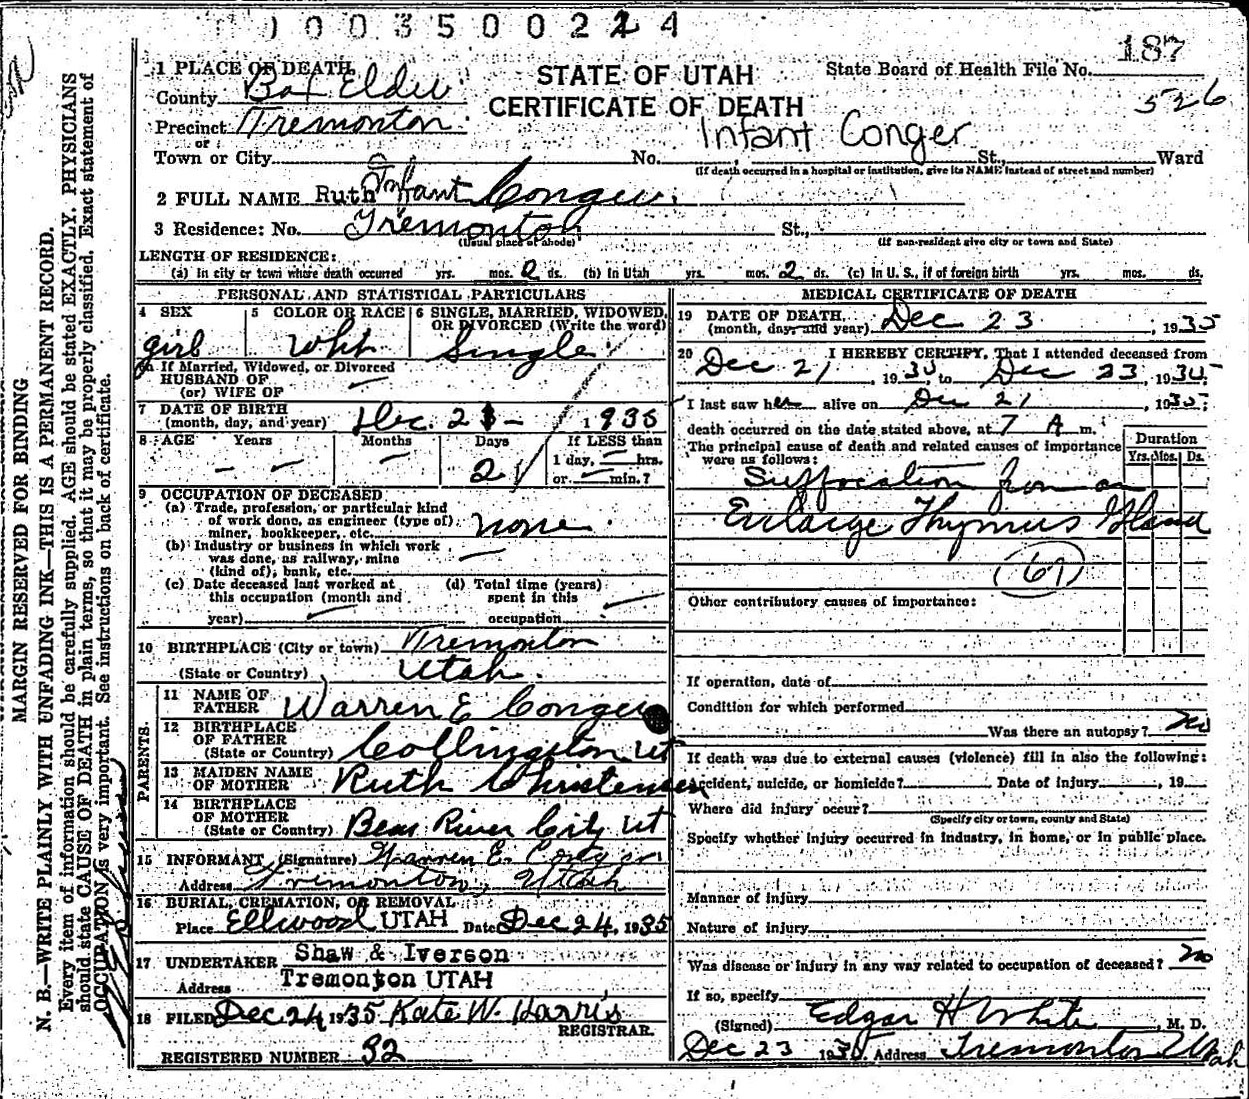 1003500224
187
1 PLACE OF DEATH
STATE OF UTAH
State Board of Health File No.
County Box Elder
CERTIFICATE OF DEATH
526
Precinct Tremonton
or
Infant Conger
Town or City No. St., Ward
(If death occurred in a hospital or institution, give its NAME instead of street and number)
2 FULL NAME Ruth Infant Conger
3 Residence: No. Tremonton St.,
(Usual place of abode) (If non-resident give city or town and State)
LENGTH OF RESIDENCE:
(a) In city or town where death occurred yrs. mos. 2 ds. (b) In Utah yrs. mos. 2 ds. (c) In U. S., if of foreign birth yrs. mos. ds.
PERSONAL AND STATISTICAL PARTICULARS
4 SEX 5 COLOR OR RACE 6 SINGLE, MARRIED, WIDOWED, OR DIVORCED (Write the word)
girl Wht Single
If Married, Widowed, or Divorced
HUSBAND OF
(or) WIFE OF
7 DATE OF BIRTH
(month, day, and year) Dec. 21 - 1935
8 AGE Years Months Days If LESS than
2 1 day, hrs.
or min.?
9 OCCUPATION OF DECEASED
(a) Trade, profession, or particular kind
of work done, as engineer (type of)
miner, bookkeeper, etc. none
(b) Industry or business in which work
was done, as railway, mine
(kind of), bank, etc.
(c) Date deceased last worked at (d) Total time (years)
this occupation (month and spent in this
year) occupation
10 BIRTHPLACE (City or town) Tremonton
(State or Country) Utah
PARENTS.
11 NAME OF
FATHER Warren E Conger
12 BIRTHPLACE
OF FATHER
(State or Country) Collingston Ut
13 MAIDEN NAME
OF MOTHER Ruth Christensen
14 BIRTHPLACE
OF MOTHER
(State or Country) Bear River City Ut
15 INFORMANT (Signature) Warren E. Conger
Address Tremonton, Utah
16 BURIAL, CREMATION, OR REMOVAL
Place Ellwood UTAH Date Dec 24, 1935
17 UNDERTAKER Shaw & Iverson
Address Tremonton UTAH
18 FILED Dec 24 1935 Kate W. Harris
REGISTRAR.
REGISTERED NUMBER 32
MEDICAL CERTIFICATE OF DEATH
19 DATE OF DEATH
(month, day, and year) Dec 23, 1935
20 I HEREBY CERTIFY, That I attended deceased from
Dec 21, 1935, to Dec 23, 1935.
I last saw her alive on Dec 21, 1935;
death occurred on the date stated above, at 7 A m.
The principal cause of death and related causes of importance
were as follows:
Duration
Yrs. Mos. Ds.
Suffocation from an
Enlarge Thymus Gland
(67)
Other contributory causes of importance:
If operation, date of
Condition for which performed
Was there an autopsy? no
If death was due to external causes (violence) fill in also the following:
Accident, suicide, or homicide? Date of injury, 19
Where did injury occur?
(Specify city or town, county and State)
Specify whether injury occurred in industry, in home, or in public place.
Manner of injury
Nature of injury
Was disease or injury in any way related to occupation of deceased? no
If so, specify
(Signed) Edgar H White, M. D.
Dec 23 1935 Address Tremonton Utah
MARGIN RESERVED FOR BINDING
N. B.—WRITE PLAINLY WITH UNFADING INK—THIS IS A PERMANENT RECORD.
Every item of information should be carefully supplied. AGE should be stated EXACTLY. PHYSICIANS
should state CAUSE OF DEATH in plain terms, so that it may be properly classified. Exact statement of
OCCUPATION is very important. See instructions on back of certificate.